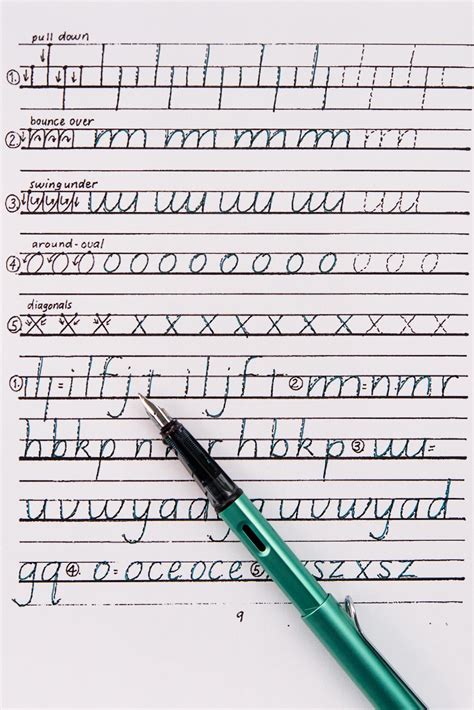 pull down
1.
bounce over
2. m m m m m
swing under
3. uu uu uu uu uu
around-oval
4. O O O o o o o o o o o o o o
diagonals
5. X X X x x x x x x x x x x x
1. = i l f j t i l j f t 2. = n m r
h b k p n m r h b k p 3. =
u v w y a d g u v w y a d
g q 4. o = o c e o c e 5. s z x s z
9